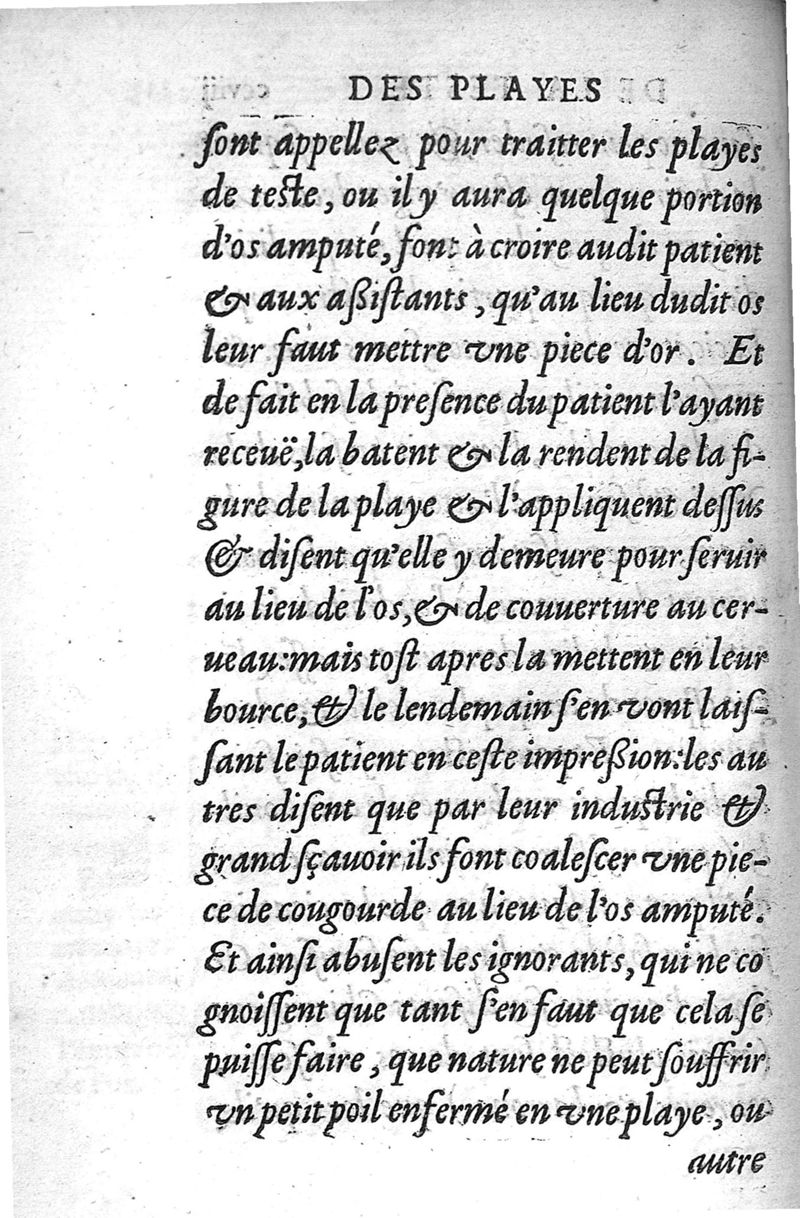 DES PLAYES
ſont appellez pour traitter les playes
de teſte, ou il y aura quelque portion
d'os amputé, font à croire audit patient
& aux aßiſtants, qu'au lieu dudit os
leur faut mettre vne piece d'or. Et
de fait en la preſence du patient l'ayant
receuë, la batent & la rendent de la fi-
gure de la playe & l'appliquent deſſus
& diſent qu'elle y demeure pour ſeruir
au lieu de l'os, & de couuerture au cer-
ueau: mais toſt apres la mettent en leur
bource, & le lendemain ſ'en vont laiſ-
ſant le patient en ceſte impreßion: les au
tres diſent que par leur induſtrie &
grand ſçauoir ils font coaleſcer vne pie-
ce de cougourde au lieu de l'os amputé.
Et ainſi abuſent les ignorants, qui ne co
gnoiſſent que tant ſ'en faut que cela ſe
puiſſe faire, que nature ne peut ſouffrir
vn petit poil enfermé en vne playe, ou
autre